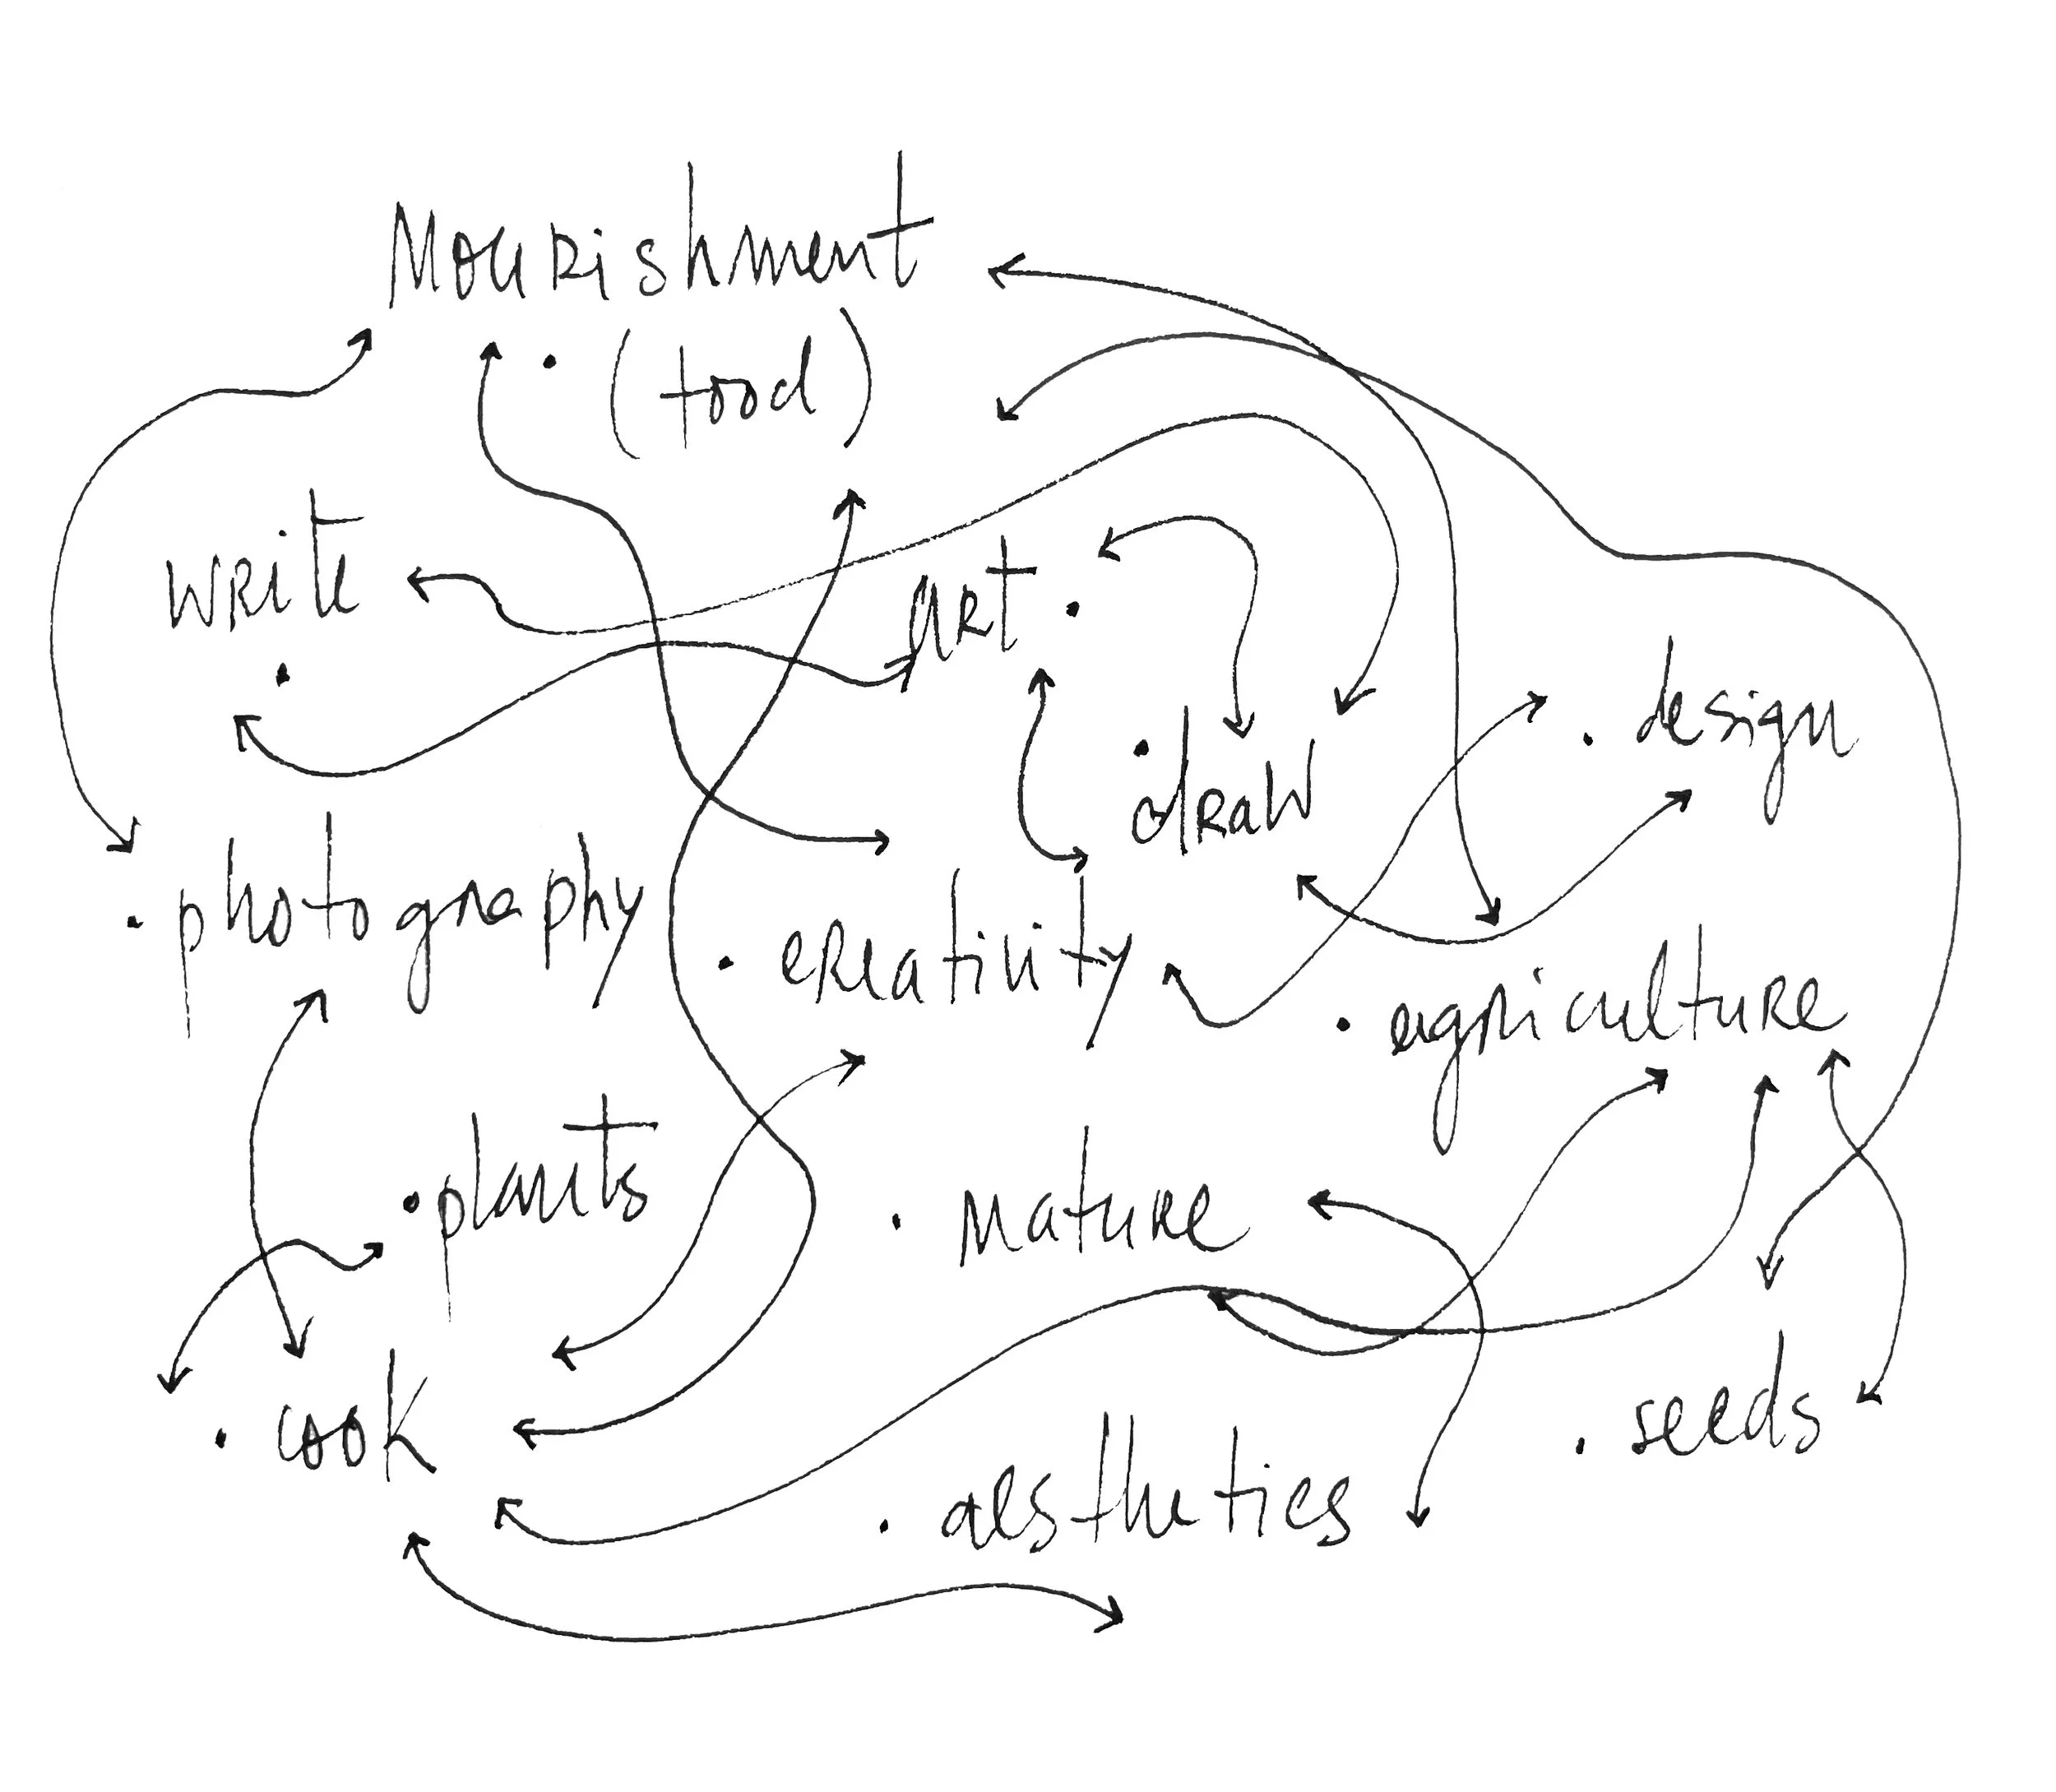 Nourishment
(food)
write
art
draw
design
photography
creativity
agriculture
plants
nature
cook
seeds
aesthetics